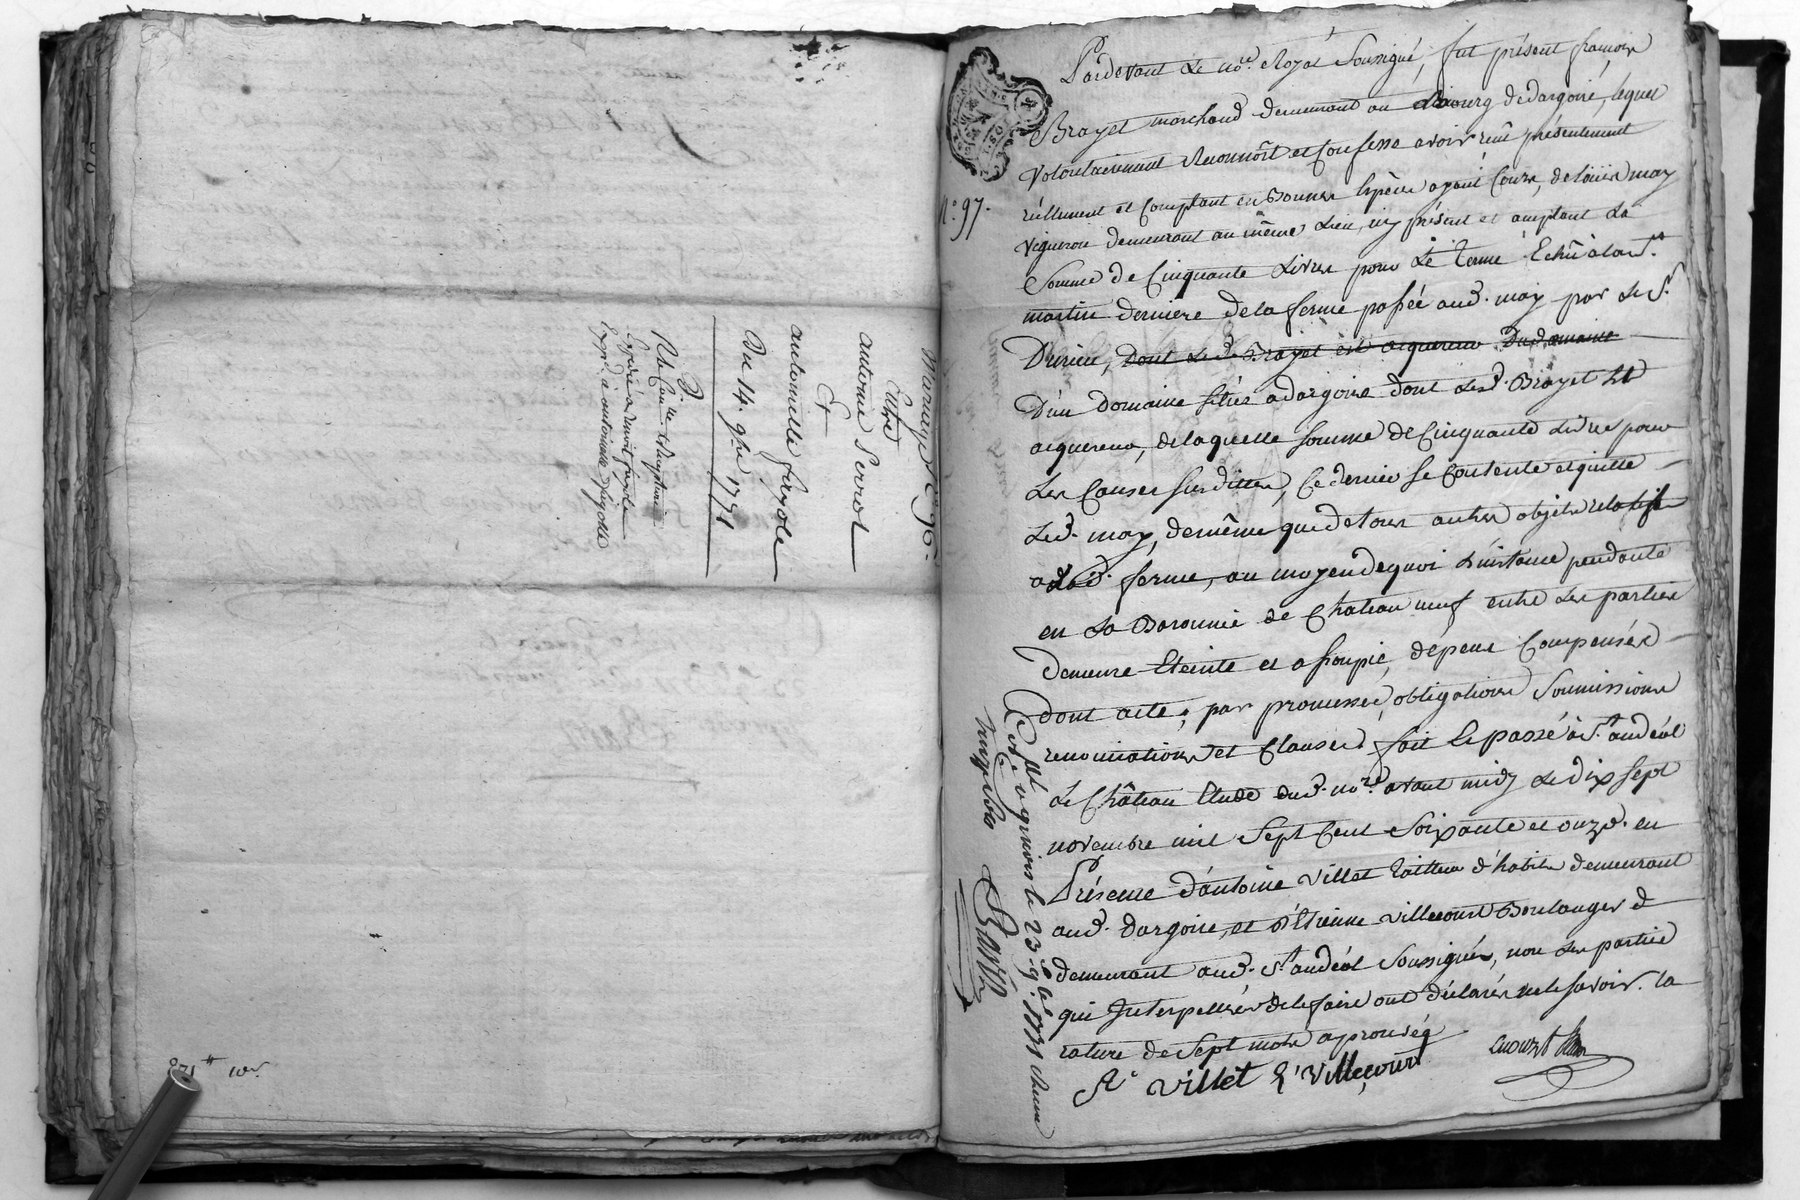 Mariage N° 96.
Entre
antoine Serrol
Et
antoinette fayole
Du 14. 9bre 1771
D.
Expédié à Benoit fayolle
Expé. a antoinette fayolle
871 ᵗᵗ 10ˢ
N°. 97.
Pardevant Le No.re Royal Soussigné, fut présent françois
Brayet marchand demeurant au Bourg de dargoire, lequel
volontairement Reconnoît et Confesse avoir reçu présentement
réellement et Comptant en Bonnes Espèces ayant Cours, de Loüis may
vigneron demeurant au même Lieu, icy présent et acceptant La
Somme de Cinquante Livres pour Le terme Echû à la St.
martin dernière de la ferme passée aud. may par Le Sr.
Durieu, dont Led. Brayet est acquereur Dud. domaine
D'un domaine situé a dargoire dont Led. Brayet est
acquereur, de laquelle somme de Cinquante Livres pour
Les Causes susdittes, Ce dernier se Contente et quitte
Led. may, de même que de tous autres objets relatifs
a Lad. ferme, au moyen de quoi L'instance pendante
en La Baronnie de Chateau neuf entre Les parties
Demeure Eteinte et assoupie, dépens Compensés
dont acte, par promesses, obligations Soumissions
renonciations et Clauses, fait et passé à St. andéol
Le Château Etude dud. No.re avant midy Le Dix sept
novembre mil Sept Cent Soixante et onze. en
Présence d'antoine Villet tailleur d'habits demeurant
aud. dargoire, et d'Etienne Villecourt Boulanger d
demeurant aud. St. andéol Soussignés, non Les parties
qui Interpellées de le faire ont déclaré ne le savoir. la
rature de Sept mots approuvée
A. villet E. Villecourt
Con.lé a givors le 23. 9.bre 1771 Reçu
treize sols